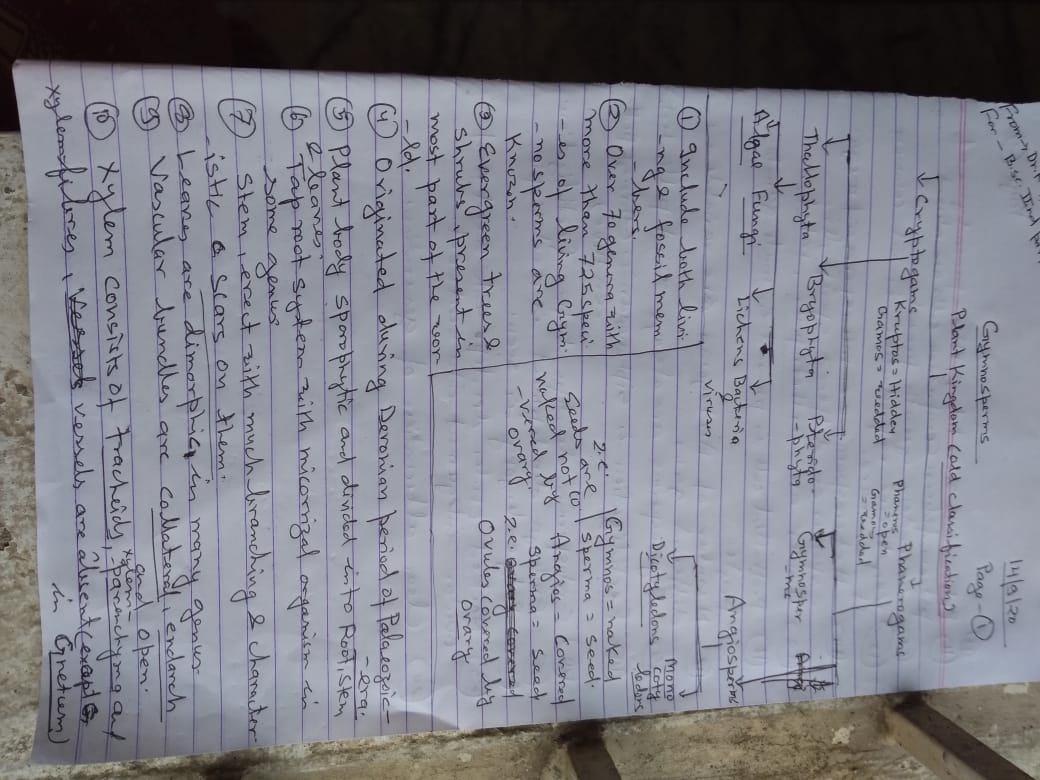 From → Dr
For - B.Sc. IInd
14/9/20
Gymnosperms
Page - ①
Plant Kingdom (old classification)
Cryptogams
Phanerogams
Kruptos = Hidden
Gamos = wedded
Phaneros
= open
Gamos
= wedded
Thallophyta Bryophyta Pterido-
-phyta
Gymnosper
-ms
Angiosperms
Algae Fungi Lichens Bacteria
&
viruses
Dicotyledons
Mono
coty
ledons
① Include both livi-
-ng & fossil mem
-bers.
② Over 70 genera with
more than 725 speci
-es of living Gym-
-nosperms are
Known.
③ Evergreen trees &
Shrubs, present in
most part of the wor
-ld.
Gymnos = naked
sperma = seed.
i.e.
seeds are
not co
naked by
-vered
ovary.
Angios = Covered
sperma = seed
i.e.
Ovules covered by
ovary
④ Originated during Devonian period of Palaeozoic-
-era.
⑤ Plant body sporophytic and divided into Root, stem
& leaves
⑥ Tap root system with micorrizal organism in
some genus
⑦ Stem, erect with much branching & character
-istic scars on them.
⑧ Leaves are dimorphic, in many genus.
⑨ Vascular bundles are collateral, endarch
and open.
⑩ Xylem consists of tracheids, xylem parenchyma and
xylem fibres, vessels are absent (except
in Gnetum)